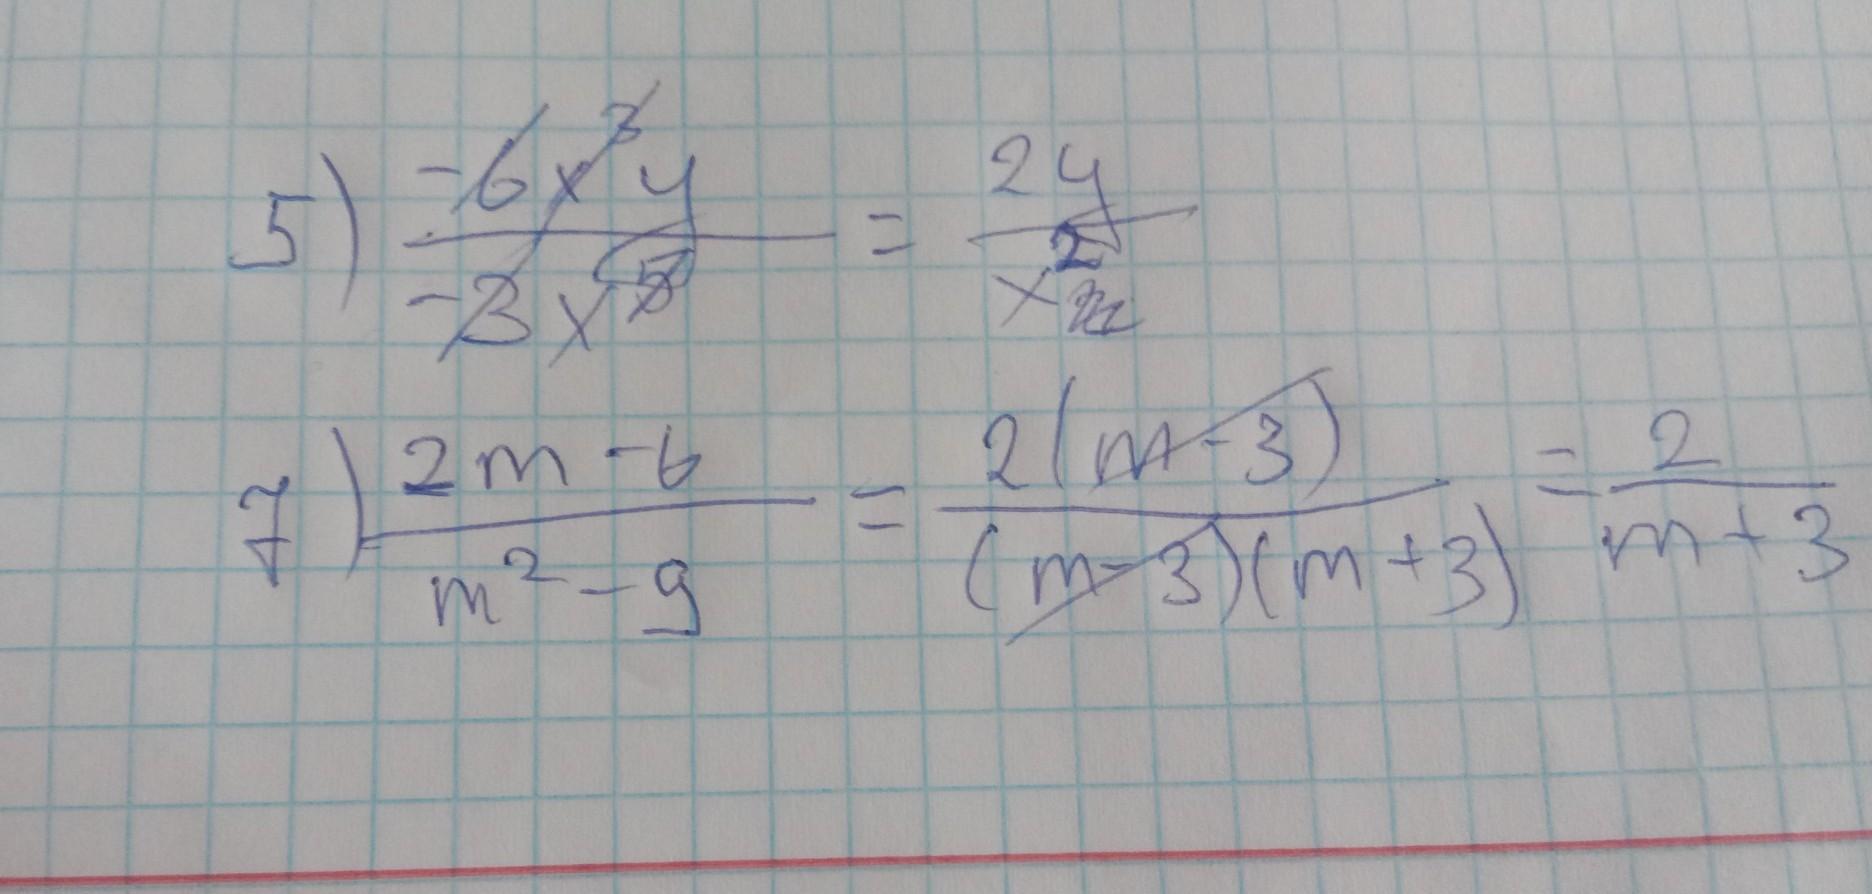 5) -6x³y / -3x⁵ = 2y / x²
7) 2m - 6 / m² - 9 = 2(m - 3) / (m - 3)(m + 3) = 2 / m + 3